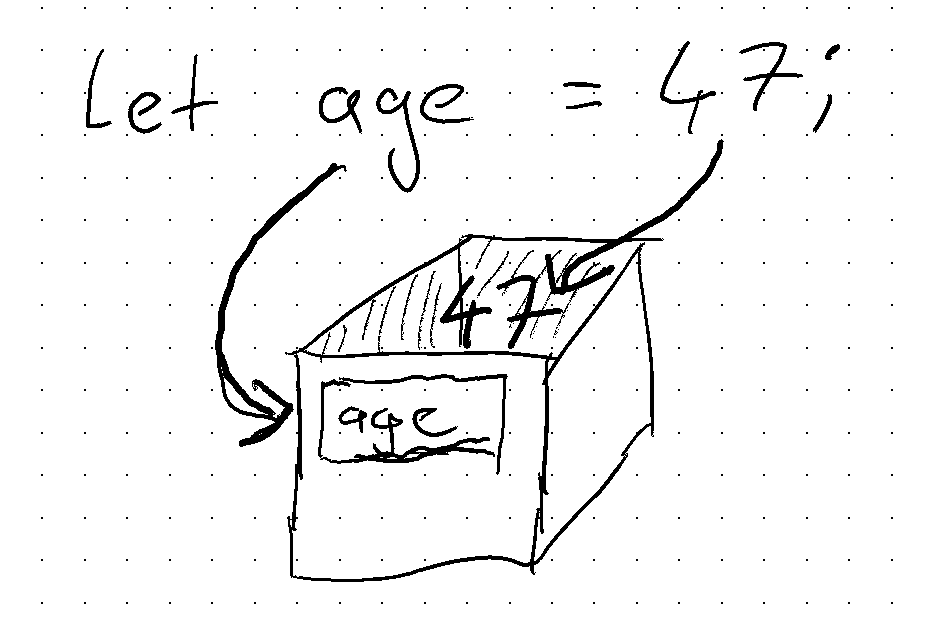 Let age = 47;
47
age